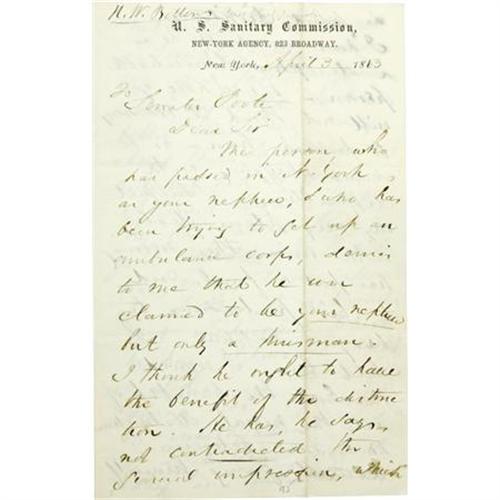 H. W. Bellows
U. S. Sanitary Commission,
NEW-YORK AGENCY, 823 BROADWAY.
New York, April 3 1863
To
Senator Foote
Dear Sir
The person, who
has passed in N. York
as your nephew, & who has
been trying to get up an
ambulance corps, denies
to me that he ever
claimed to be your nephew
but only a kinsman.
I think he ought to have
the benefit of the distinc
tion. He has, he says,
not contradicted the
general impression, which